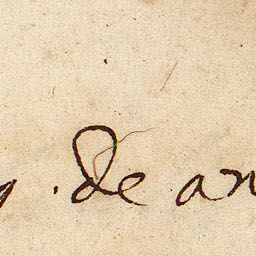 de an